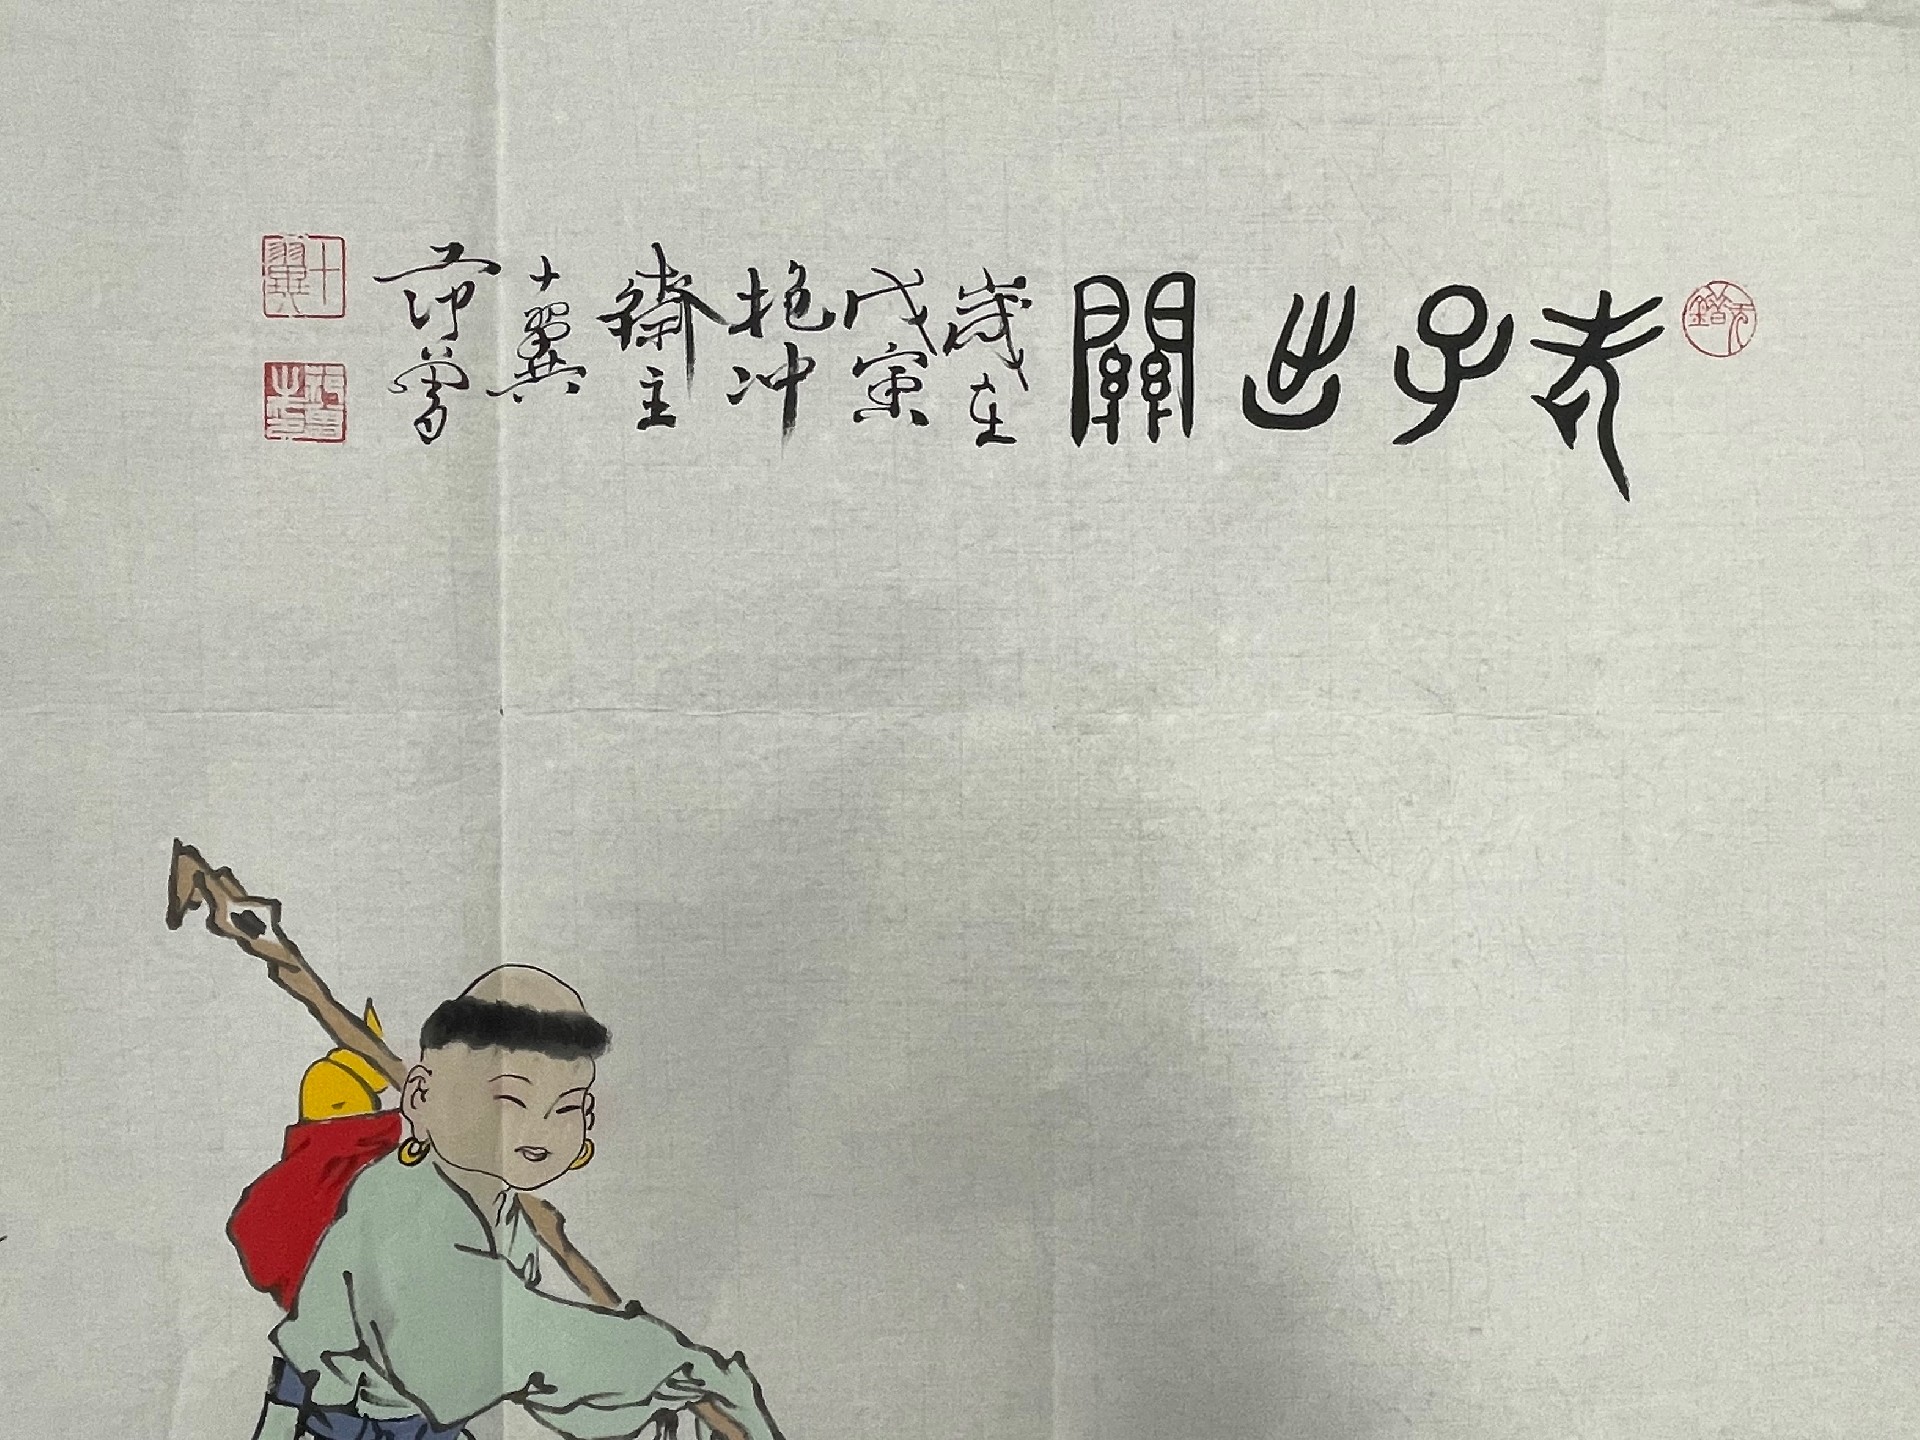 老子出關
歲在
戊寅
抱冲
齋主
十翼
范曾
十翼